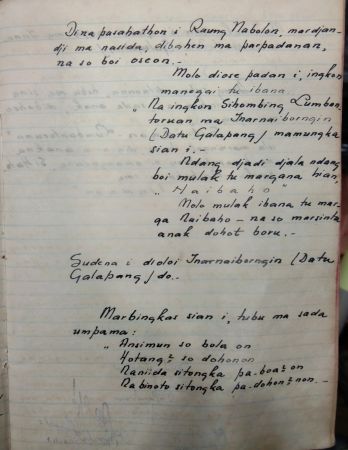 Dina pasahathon i Raung Nabolon, mardjan-
dji ma nasida, dibahen ma parpadanan,
na so boi oseon.-
Molo diose padan i, ingkon
manegai tu ibana.
" Na ingkon Sihombing Lumban
toruan ma Inarnaiborngin
(Datu Galapang) mamungka
sian i.-
Ndang djadi djala ndang
boi mulak tu margana hian,
" Naibaho "
Molo mulak ibana tu mar-
ga Naibaho - na so marsinta
anak dohot boru.-
Sudena i dioloi Inarnaiborngin (Datu
Galapang) do.-
Marbingkas sian i, tubu ma sada
umpama:
" Ansimun so bola on
Hotang² so dohonon
Naniida sitongka pa-boa²on
Nabinoto sitongka pa-dohon²non.-